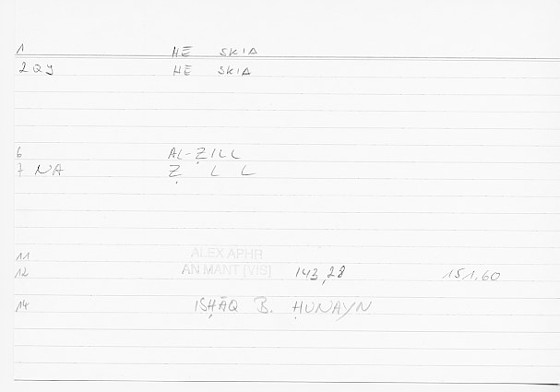 1 HE SKIA
2 QY HE SKIA
6 AL-ẒILL
7 NA Ẓ L L
11 ALEX APHR
12 AN MANT [VIS] 143,28 151.60
14 ISḤĀQ B. ḤUNAYN